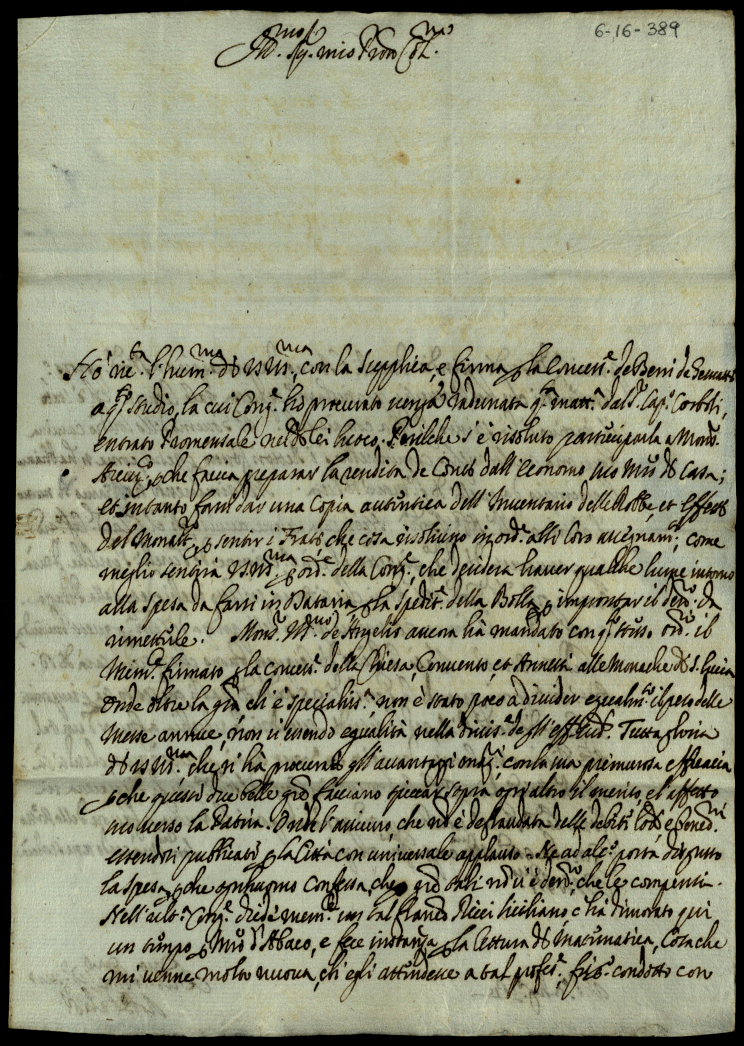 6-16-389
Ill.mo Sig. mio Pron Col.mo
Ho' ric.ta l'hum.ma di VS Ill.ma, con la supplica, e firma p la Concess.e de Beni de
a q.sto studio, la cui Cong.e ho procurato venga radunata q.ta matt.a dal S. Cap. Corboli,
entrato Promensale nel di lei luoco. Perilche s'è risoluto participarla a Mons.
p che faccia preparar la rendita de Conti dall'economo suo M.ro di Casa;
et intanto farsi dar una Copia autentica dell'Inventario delle Robbe, et effetti
del Monast.o, p sentir i Frati che cosa risolvino in ord.e alli loro assegnam.ti, come
meglio sentirà VS Ill.ma p ord.e della Cong.e, che desidera haver qualche lume intorno
alla spesa da farsi in Dataria p la spedit.e della Bolla p improntar il den.ro da
rimettersele. Mons. Ill.mo de Angelis ancora hà mandato con q.sto ord.o il
Mem.le firmato p la concess.e della Chiesa, Convento, et Annessi alle Monache di S. Lucia
Onde oltre la gra che è specialiss.a, non è stato poco a divider egualm.te il peso delle
Messe annue, non vi essendo egualità nella divis.e degl'effetti. Tutta gloria
di VS Ill.ma che ci hà procurato gl'avantaggi con la sua premurosa efficacia
p che queste due belle grê facciano spiccar sopra ogn'altro il merito, e l'affetto
suo verso la Patria. Onde l'assicuro, che nè è defraudata delle debite lodi, e bened.ni
essendosi publicato p la Città con universale applauso. Ne ad alc.o porta disgusto
la spesa, p che ogn'huomo confessa, che a grê tali nò vi è den.ro, che le compensi.
Nell'ult.a Cong.e diedi mem.le un tal Franc.o Ricci siciliano c'hà dimorato qui
un tempo p M.ro d'Abaco, e fece instanza p la lettura di Matematica, Cosa che
mi venne molto nuova, ch'egli attendesse a tal profess.e, condotto con